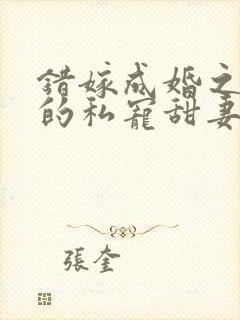 錯嫁成婚之
的私寵甜妻
張奎